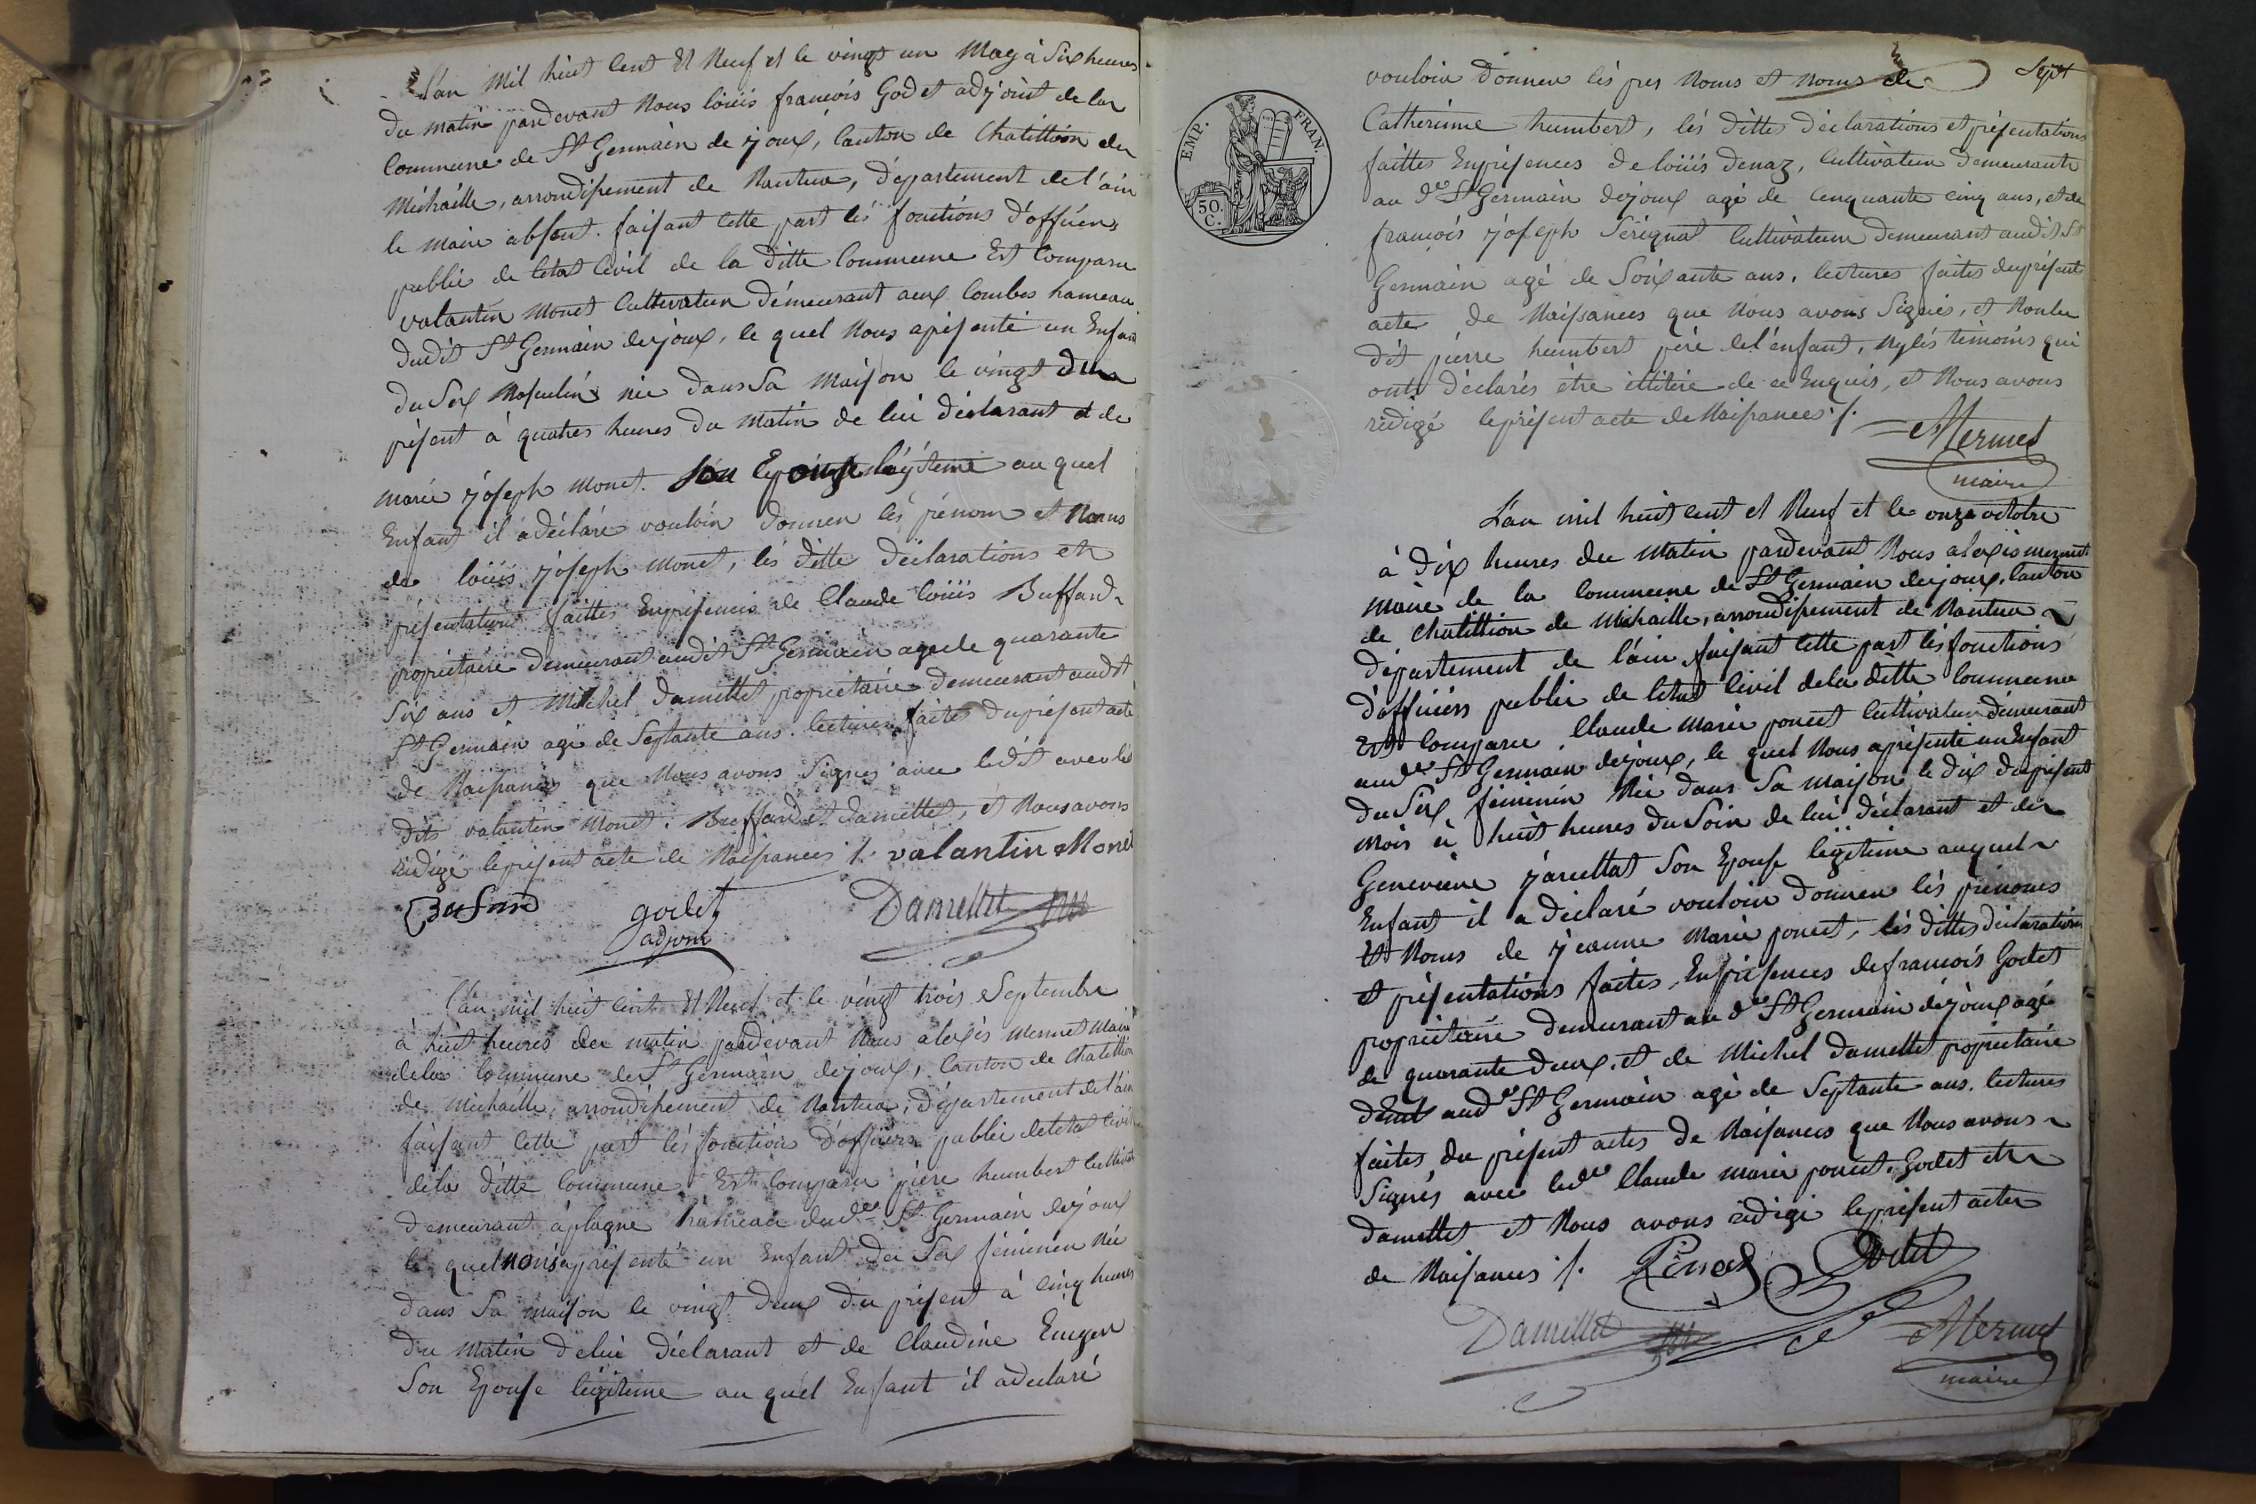 L'an mil huit cent et Neuf et le vingt un May à Six heures
du matin pardevant Nous loüis francois Godet adjoint de la
Commune de St Germain de joux, Canton de Chatillion de
Michaille, arrondisement de Nantua, département de l'ain
le maire absent. faisant cette part lés fonctions d'officier
public de letat Civil de la ditte Commune Est Comparu
valantin Monet Cultivateur démeurant aux Combes hameau
dudit St Germain dejoux, le quel Nous apésenté un Enfant
du Sex Masculin née dans Sa maison le vingt du
présent à quatres heures du matin de lui déclarant et de
marie joseph monet. Son Epouse légitime au quel
Enfant il a déclaré vouloir donner lés prénom et Noms
de loüis joseph monet, lés ditte déclarations et
présentations faittes Enprésences de Claude loüis Buffard
propriétaire demeurant audit St Germain agé de quarante
Six ans et Michel Damillet propriétaire demeurant audit
St Germain agé de Septante ans. lectures faites du présent acte
de Naissances que Nous avons Signés avec ledit avec lés
dits valantin Monet. Buffard et Damillet, et Nous avons
rédigé leprésent acte de Naissances /. valantin Monet
godet Damillet
adjoint
L'an mil huit cent Et Neuf et le vingt trois Septembre
à huit heures du matin pardevant Nous alexis mermet Maire
dela Commune de St Germain dejoux, Canton de Chatillion
de Michaille, arrondisement de Nantua, département de l'ain
faisant cette part lés fonctions d'officiers public de letat Civil
dela ditte Commune Est Comparu piere humbert Cultivateur
demeurant à plagne hameau dude St Germain dejoux
le quel nous aprésenté un Enfant du Sex féminin Née
dans Sa maison le vingt deux du présent à cinq heures
du matin delui déclarant et de Claudine
Son Epouse légitime au quel Enfant il a déclaré
Sept
vouloir donner lés pres Noms et noms de
Catherinne humbert, lés dittes déclarations et présentations
faittes Enprésences de loüis denaz, Cultivateur demeurant
au de St Germain dejoux agé de cinquante cinq ans, et de
françois joseph Sérignat Cultivateur demeurant audit St
Germain agé de Soixante ans, lectures faites du présent
acte de Naissances que Nous avons Signés, et Nonle
dit pierre humbert père de l'énfant, ny lés témoins qui
onts déclarés être illitére de ce Enquis, et Nous avons
rédigé leprésent acte de Naissances /.
Mermet
maire
EMP. FRAN.
50.
C.
L'an mil huit cent et Neuf et le onze octobre
à dix heures du matin pardevant Nous alexis mermet
maire de la Commune de St Germain dejoux, Canton
de Chatillion de Michaille, arrondisement de Nantua
département de l'ain, faisant cette part lés fonctions
d'officiers public de letat Civil dela ditte Commune
Est Comparu Claude Marie poncet Cultivateur démeurant
aude St Germain dejoux, le quel Nous aprésenté un Enfant
du Sex féminin Née dans Sa maison le dix du présent
mois à huit heures du Soir de lui déclarant et de
Genevieve jarcellat Son Epouse légitime auquel
Enfant il a déclaré vouloir donner lés prénoms
Et Noms de jeanne Marie poncet, lés dittes déclarations
et présentations faites, Enprésences defrancois Godet
propriétaire demeurant au de St Germain déjoux agé
de quarante deux. et de Michel Damillet propriétaire
démt aude St Germain agé de Septante ans. lectures
faites du présent actes de Naissances que Nous avons
Signés avec lede Claude marie poncet. Godet et
Damillet et Nous avons rédigé leprésent acte
de Naisances /. Poncet Godet
Damillet Mermet
maire